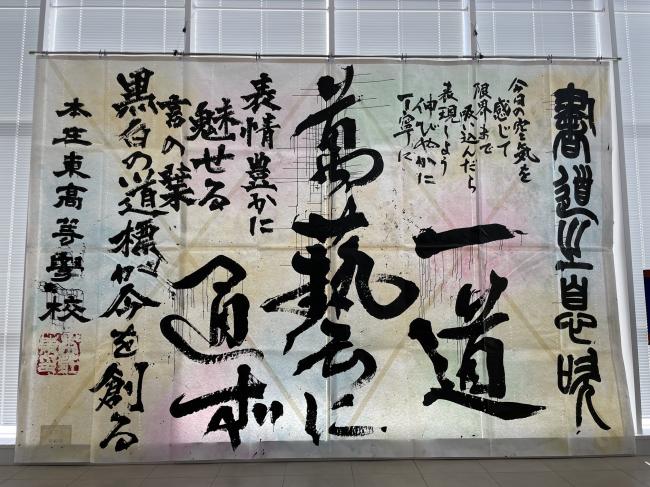 書道之息吹
今日の空気を
感じて
限界まで
吸込んだら
表現しよう
伸びやかに
丁寧に
一道
萬藝に
通ず
表情豊かに
魅せる
書の栞
黒白の道標が今を創る
本庄東高等學校